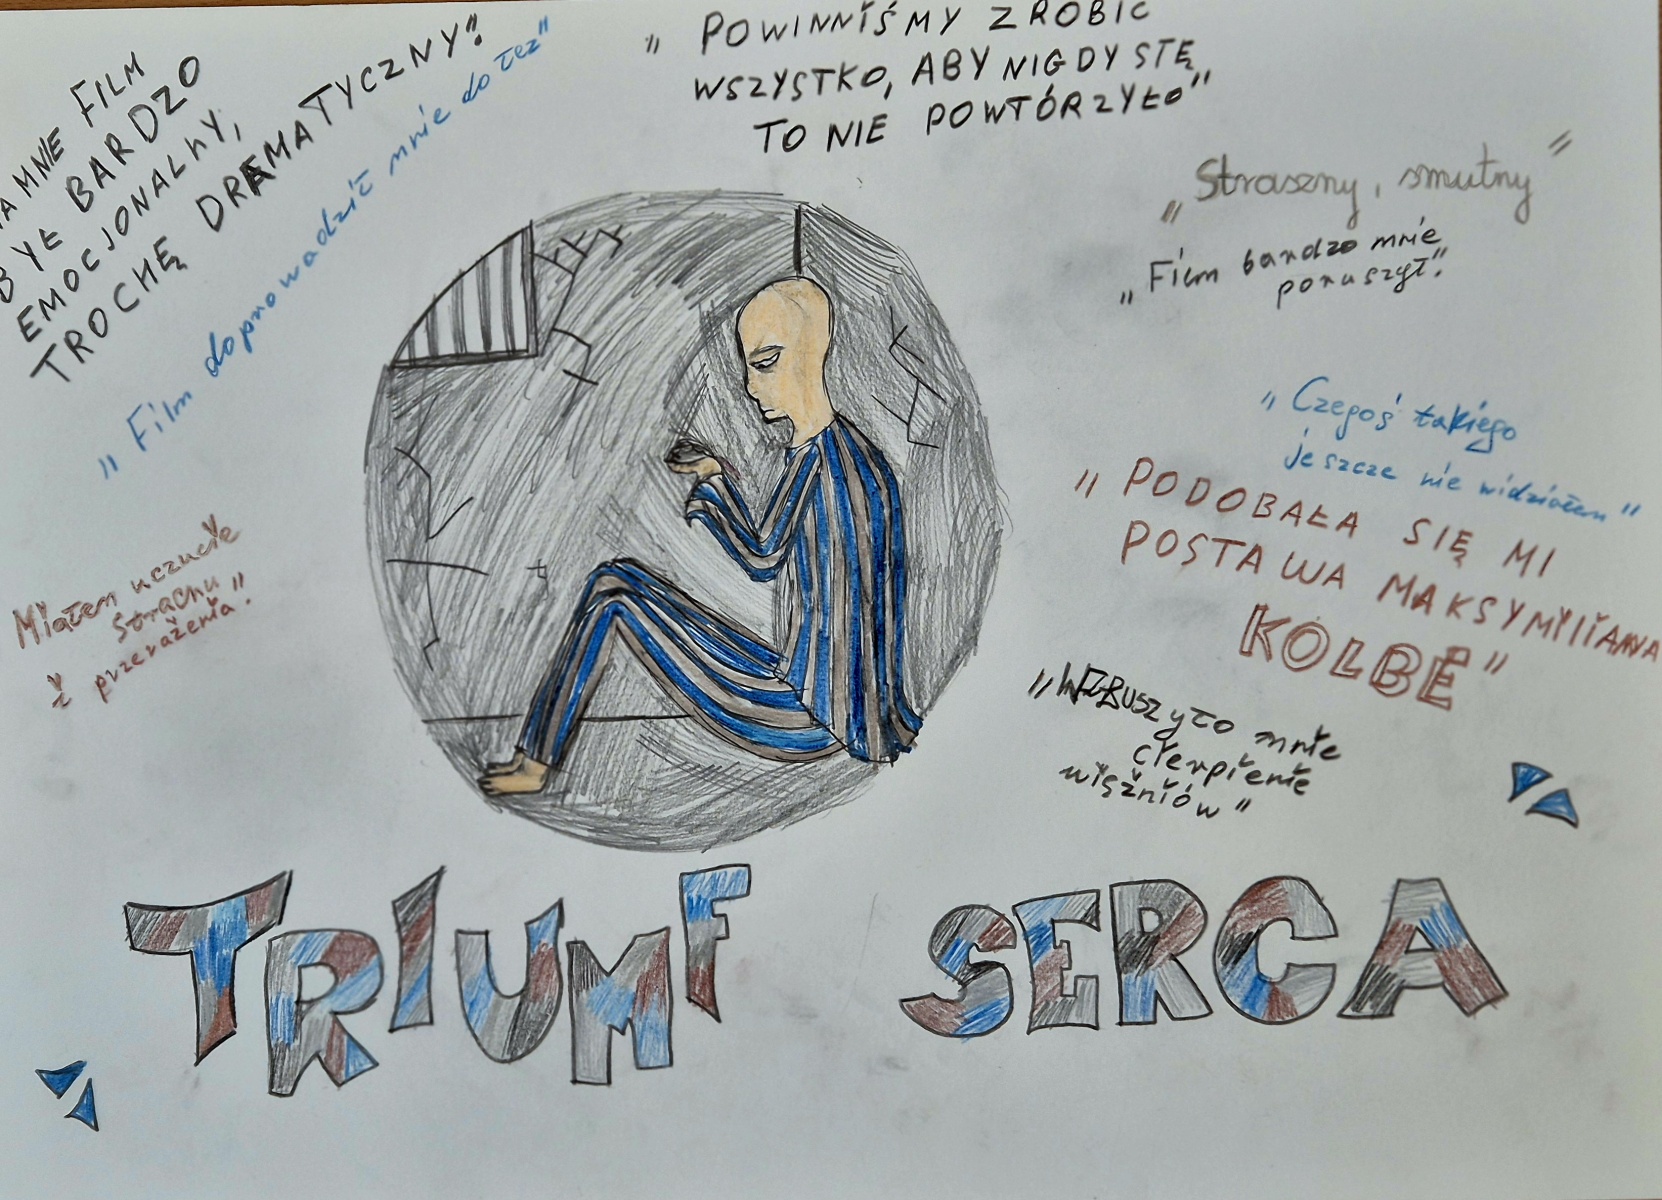 MNIE FILM
BYŁ BARDZO
EMOCJONALNY,
TROCHĘ DRAMATYCZNY".
"Film doprowadzić mnie do łez"
„POWINNIŚMY ZROBIĆ
WSZYSTKO, ABY NIGDY SIĘ
TO NIE POWTÓRZYŁO"
„Straszny, smutny"
„Film bardzo mnie
poruszył".
"Czegoś takiego
jeszcze nie widziałem"
"PODOBAŁA SIĘ MI
POSTAWA MAKSYMILIANA
KOLBE"
Miałem uczucie
strachu
i przerażenia".
"WZBUSZYŁO mnie
cierpienie
więźniów"
TRIUMF SERCA